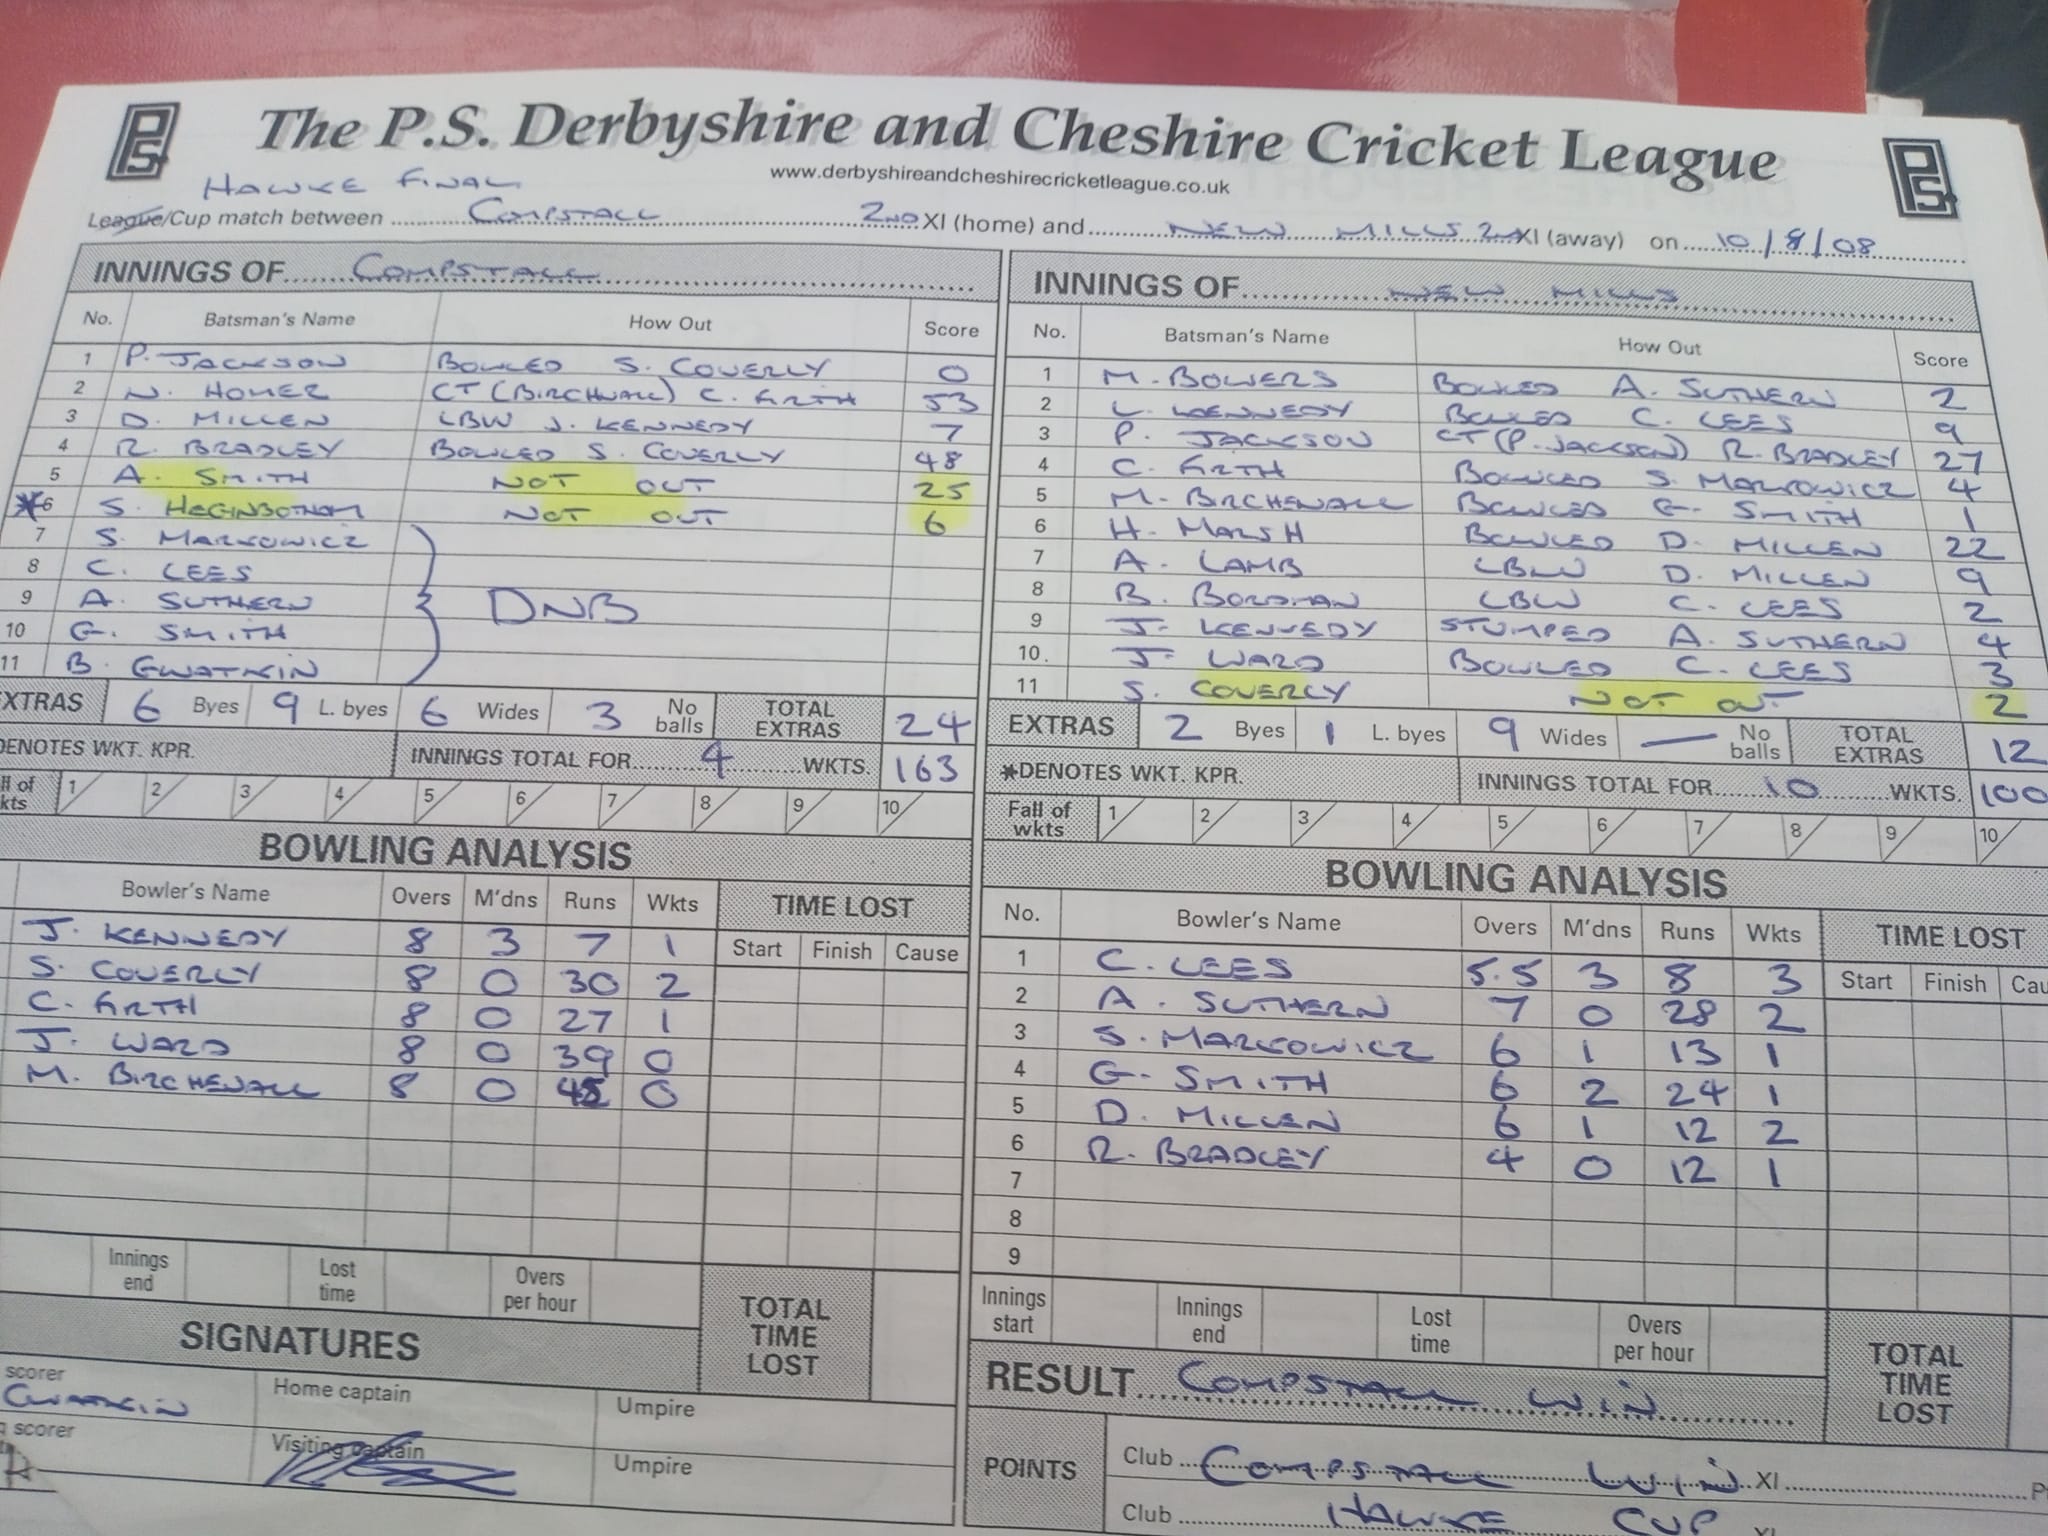 The P.S. Derbyshire and Cheshire Cricket League
www.derbyshireandcheshirecricketleague.co.uk
HAWKE FINAL
League/Cup match between COMPSTALL 2ND XI (home) and NEW MILLS 2ND XI (away) on 10/8/08
INNINGS OF COMPSTALL
No. Batsman's Name How Out Score
1 P. JACKSON BOWLED S. COVERLY 0
2 N. HOMER CT (BIRCHNALL) C. FIRTH 53
3 D. MILLEN LBW J. KENNEDY 7
4 R. BRADLEY BOWLED S. COVERLY 48
5 A. SMITH NOT OUT 25
*6 S. HEGINBOTHAM NOT OUT 6
7 S. MARKOWICZ
8 C. LEES
9 A. SUTHERN DNB
10 G. SMITH
11 B. GWATKIN
EXTRAS 6 Byes 9 L. byes 6 Wides 3 No balls TOTAL EXTRAS 24
DENOTES WKT. KPR. INNINGS TOTAL FOR 4 WKTS. 163
ll of kts 1 2 3 4 5 6 7 8 9 10
BOWLING ANALYSIS
Bowler's Name Overs M'dns Runs Wkts TIME LOST
Start Finish Cause
J. KENNEDY 8 3 7 1
S. COVERLY 8 0 30 2
C. FIRTH 8 0 27 1
J. WARD 8 0 39 0
M. BIRCHENALL 8 0 45 0
Innings end Lost time Overs per hour TOTAL TIME LOST
SIGNATURES
scorer Home captain Umpire
GWATKIN
scorer Visiting captain Umpire
INNINGS OF NEW MILLS
No. Batsman's Name How Out Score
1 M. BOWERS BOWLED A. SUTHERN 2
2 L. KENNEDY BOWLED C. LEES 9
3 P. JACKSON CT (P. JACKSON) R. BRADLEY 27
4 C. FIRTH BOWLED S. MARKOWICZ 4
5 M. BIRCHENALL BOWLED G. SMITH 1
6 H. MARSH BOWLED D. MILLEN 22
7 A. LAMB LBW D. MILLEN 9
8 B. BORDMAN LBW C. LEES 2
9 J. KENNEDY STUMPED A. SUTHERN 4
10. J. WARD BOWLED C. LEES 3
11 S. COVERLY NOT OUT 2
EXTRAS 2 Byes 1 L. byes 9 Wides — No balls TOTAL EXTRAS 12
*DENOTES WKT. KPR. INNINGS TOTAL FOR 10 WKTS. 100
Fall of wkts 1 2 3 4 5 6 7 8 9 10
BOWLING ANALYSIS
No. Bowler's Name Overs M'dns Runs Wkts TIME LOST
Start Finish Cau
1 C. LEES 5.5 3 8 3
2 A. SUTHERN 7 0 28 2
3 S. MARKOWICZ 6 1 13 1
4 G. SMITH 6 2 24 1
5 D. MILLEN 6 1 12 2
6 R. BRADLEY 4 0 12 1
7
8
9
Innings start Innings end Lost time Overs per hour TOTAL TIME LOST
RESULT COMPSTALL WIN
POINTS Club COMPSTALL WIN XI
Club HAWKE CUP XI